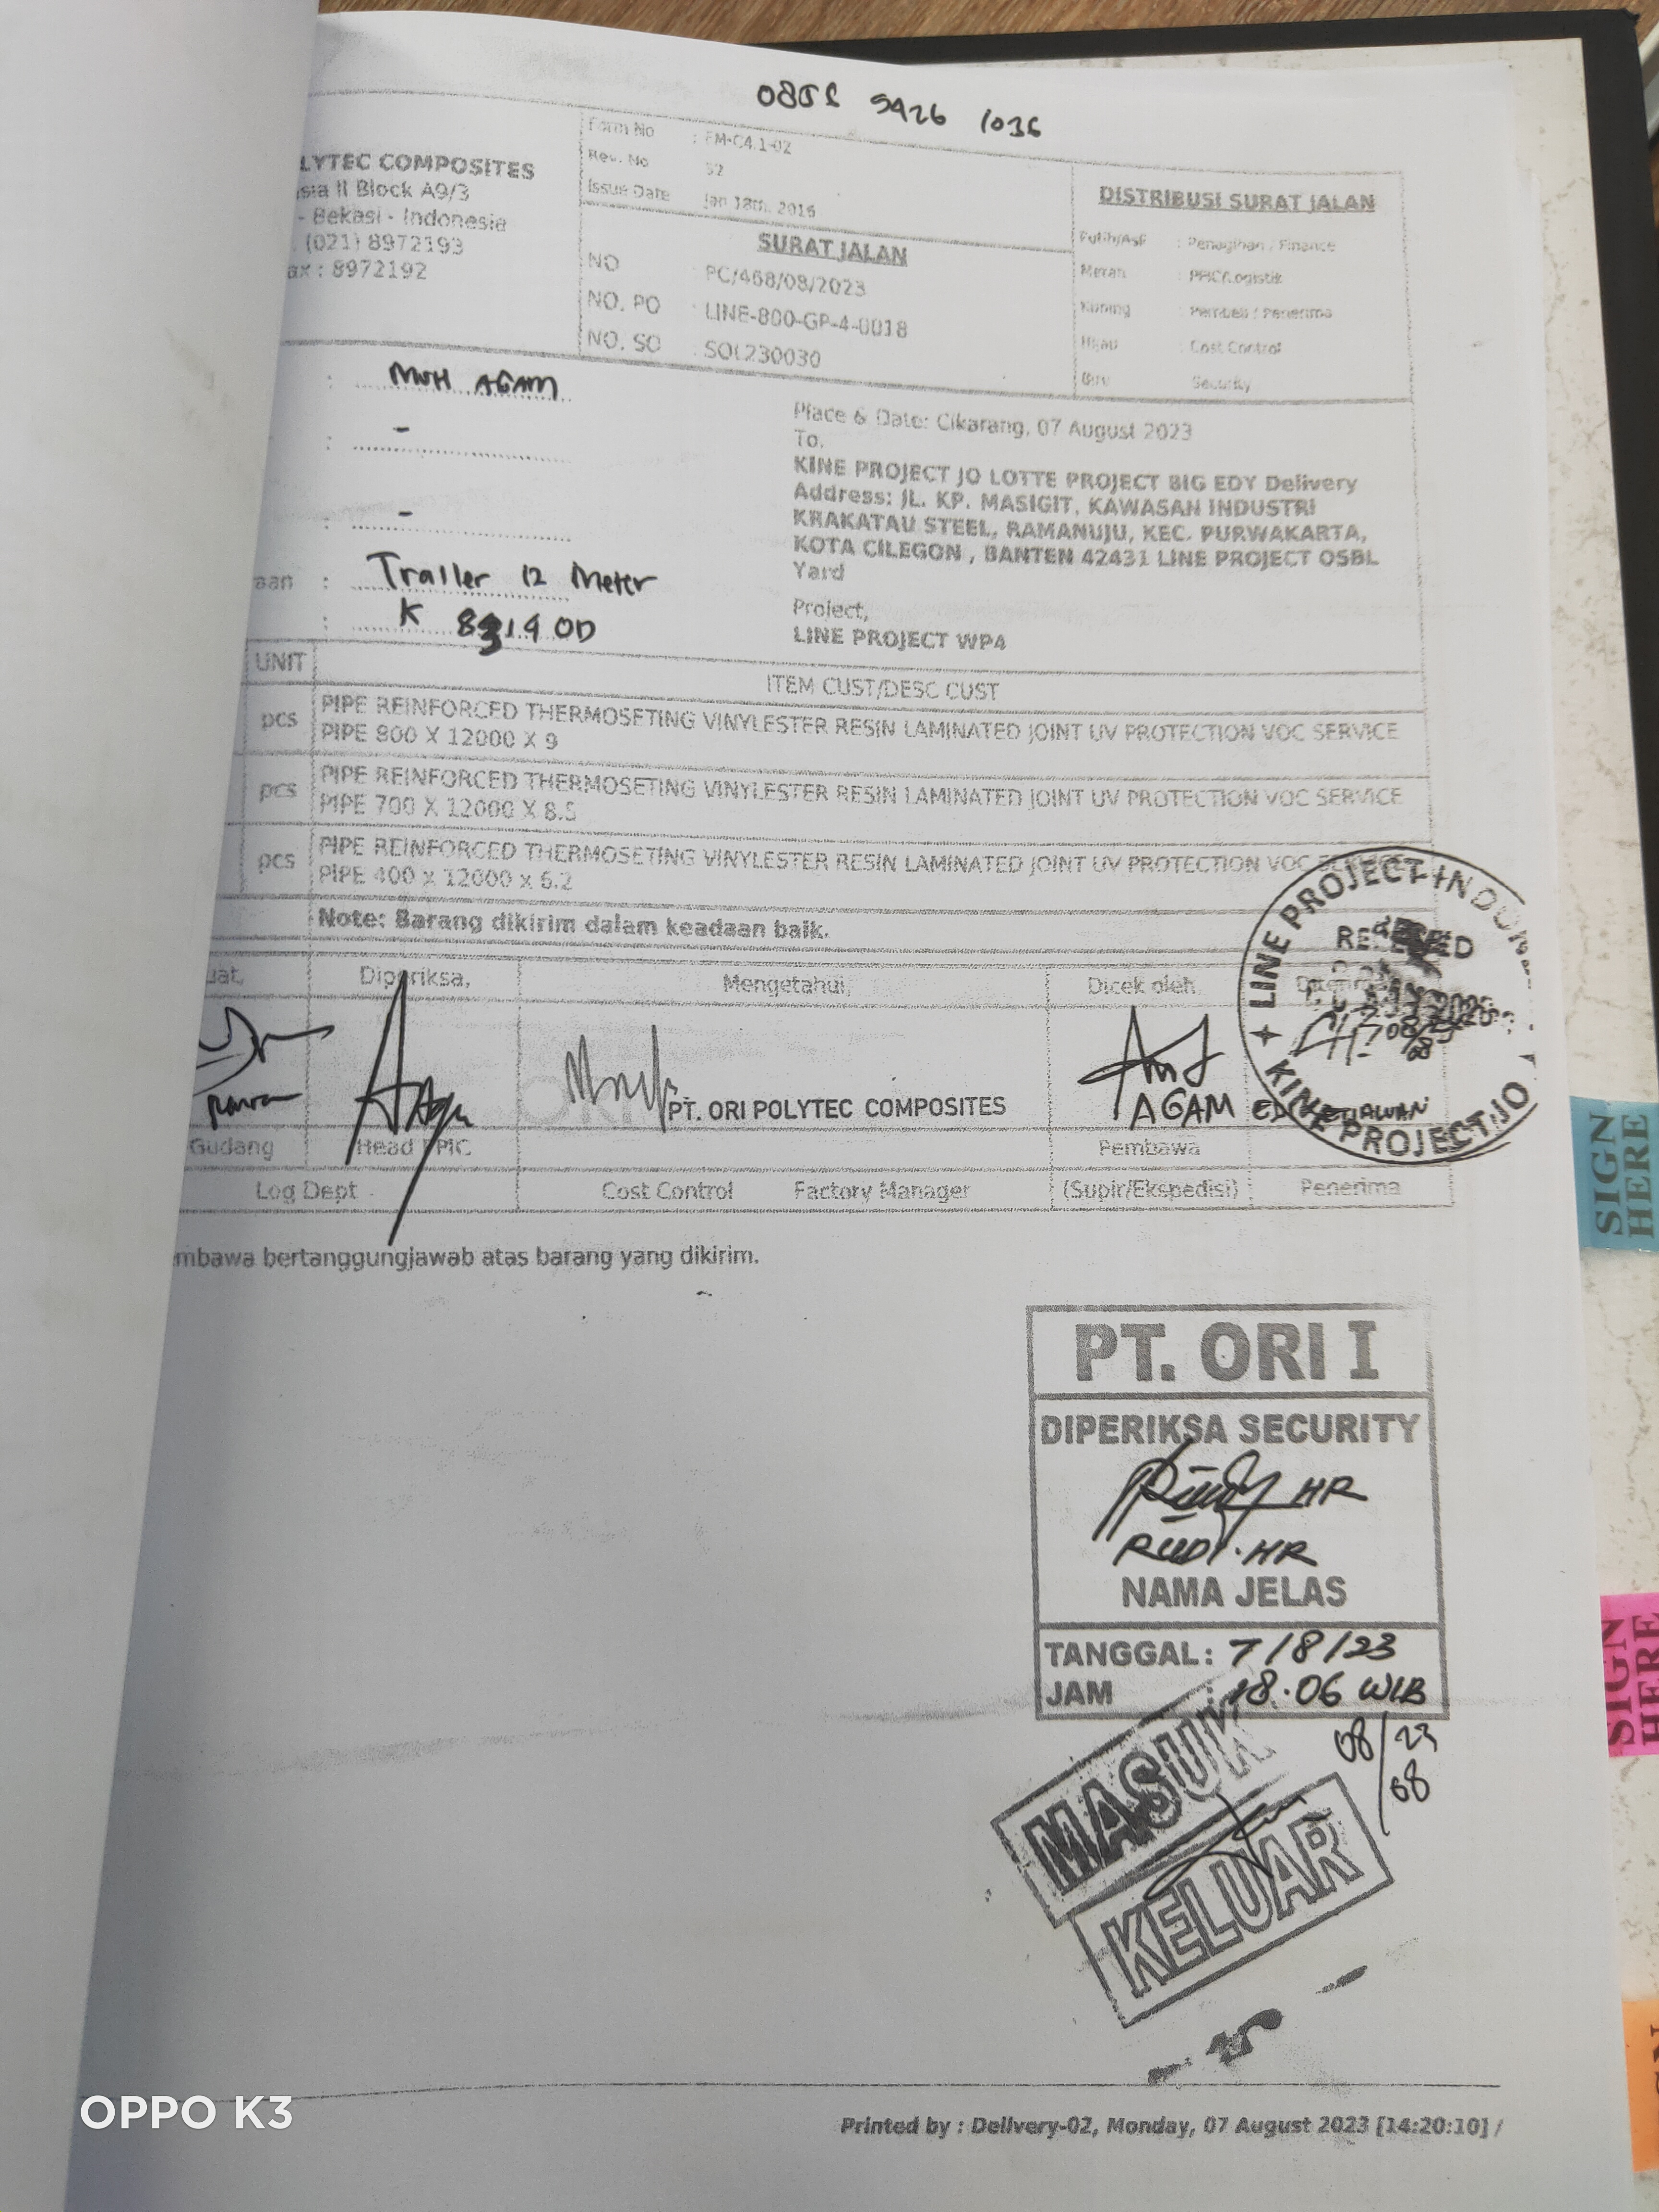 1036
LYTEC COMPOSITES
sia II Block A9/3
- Bekasi - Indonesia
. (021) 8972193
ax : 8972192
Form No : FM-C4.1-02
Rev. No
Issue Date Jan 18th, 2016
SURAT JALAN
NO : PC/468/08/2023
NO. PO : LINE-800-GP-4-0018
NO. SO : SOL230030
DISTRIBUSI SURAT JALAN
Putih/Asli : Penagihan / Finance
Merah : PPIC/Logistik
Kuning : Pembeli / Penerima
Hijau : Cost Control
Biru Security
: MUH AGAM
: -
: -
aan : Trailer 12 Meter
: K OD
Place & Date: Cikarang, 07 August 2023
To,
KINE PROJECT JO LOTTE PROJECT BIG EDY Delivery
Address: JL. KP. MASIGIT, KAWASAN INDUSTRI
KRAKATAU STEEL, RAMANUJU, KEC. PURWAKARTA,
KOTA CILEGON , BANTEN 42431 LINE PROJECT OSBL
Yard
Project,
LINE PROJECT WP4
UNIT ITEM CUST/DESC CUST
pcs PIPE REINFORCED THERMOSETING VINYLESTER RESIN LAMINATED JOINT UV PROTECTION VOC SERVICE
PIPE 800 X 12000 X 9
pcs PIPE REINFORCED THERMOSETING VINYLESTER RESIN LAMINATED JOINT UV PROTECTION VOC SERVICE
PIPE 700 X 12000 X 8.5
pcs PIPE REINFORCED THERMOSETING VINYLESTER RESIN LAMINATED JOINT UV PROTECTION VOC
PIPE 400 x 12000 x 6.2
Note: Barang dikirim dalam keadaan baik.
uat, Diperiksa, Mengetahui, Dicek oleh,
LINE PROJECT INDONE
KINE PROJECT JO
PT. ORI POLYTEC COMPOSITES
AGAM
Gudang Head PPIC Pembawa
Log Dept Cost Control Factory Manager (Supir/Ekspedisi) Penerima
mbawa bertanggungjawab atas barang yang dikirim.
PT. ORI I
DIPERIKSA SECURITY
HR
RUDI. HR
NAMA JELAS
TANGGAL : 7/8/23
JAM : 18.06 WIB
08/23
08
MASUK
KELUAR
Printed by : Delivery-02, Monday, 07 August 2023 [14:20:10] /
SIGN
HERE
SIGN
HERE
OPPO K3